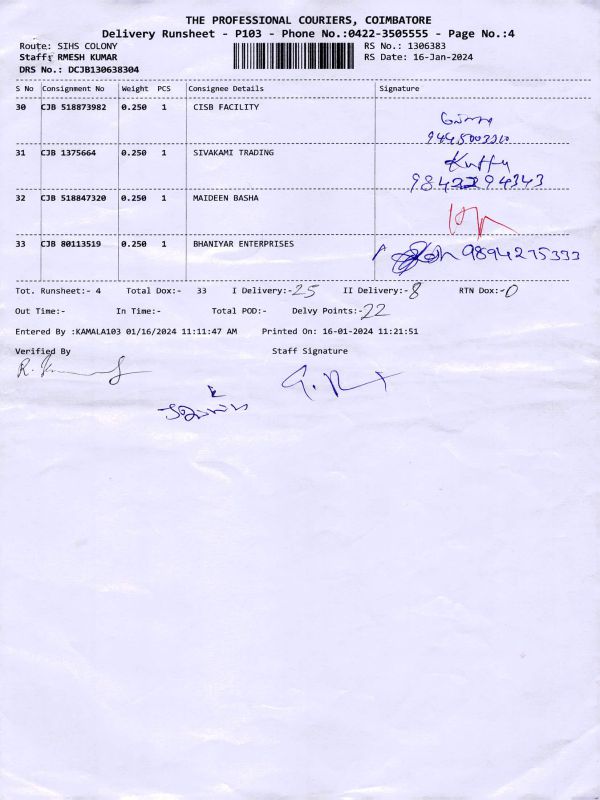 THE PROFESSIONAL COURIERS, COIMBATORE
Delivery Runsheet - P103 - Phone No.:0422-3505555 - Page No.:4
Route: SIHS COLONY RS No.: 1306383
Staff: RMESH KUMAR RS Date: 16-Jan-2024
DRS No.: DCJB130638304
S No Consignment No Weight PCS Consignee Details Signature
30 CJB 518873982 0.250 1 CISB FACILITY
31 CJB 1375664 0.250 1 SIVAKAMI TRADING
9842294343
32 CJB 518847320 0.250 1 MAIDEEN BASHA
33 CJB 80113519 0.250 1 BHANIYAR ENTERPRISES 9894275333
Tot. Runsheet:- 4 Total Dox:- 33 I Delivery:- 25 II Delivery:- 8 RTN Dox:- 0
Out Time:- In Time:- Total POD:- Delvy Points:- 22
Entered By :KAMALA103 01/16/2024 11:11:47 AM Printed On: 16-01-2024 11:21:51
Verified By Staff Signature